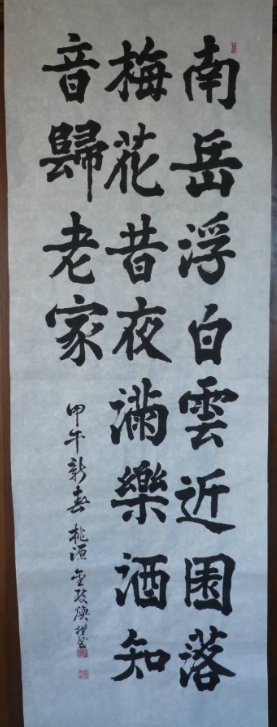 南岳浮白雲近園落
梅花昔夜滿樂酒知
音歸老家
甲午新春 桃源